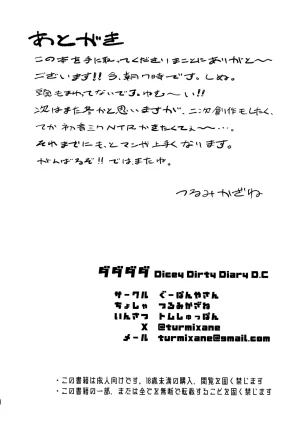 あとがき
この本を手に取ってくださいまことにありがと〜
ございます!! 今、朝7時です。しぬ。
頭もまわってないです。ねむ〜い!!
次はまた冬かと思いますが、二次創作もしたく、
てか初音ミクNTRかきたくてぇ〜…。
それまでにもっとマンガ上手くなります。
がんばるぞ!! ではまたね。
つるみがざね
ダダダダ Dicey Dirty Diary D.C
サークル ぐーぱんやさん
ちょしゃ つるみかざね
いんさつ トムしゅっぱん
X @turmixane
メール turmixane@gmail.com
・この書籍は成人向けです。18歳未満の購入、閲覧を固く禁じます
・この書籍の一部、または全てを無断で転載することを固く禁じます